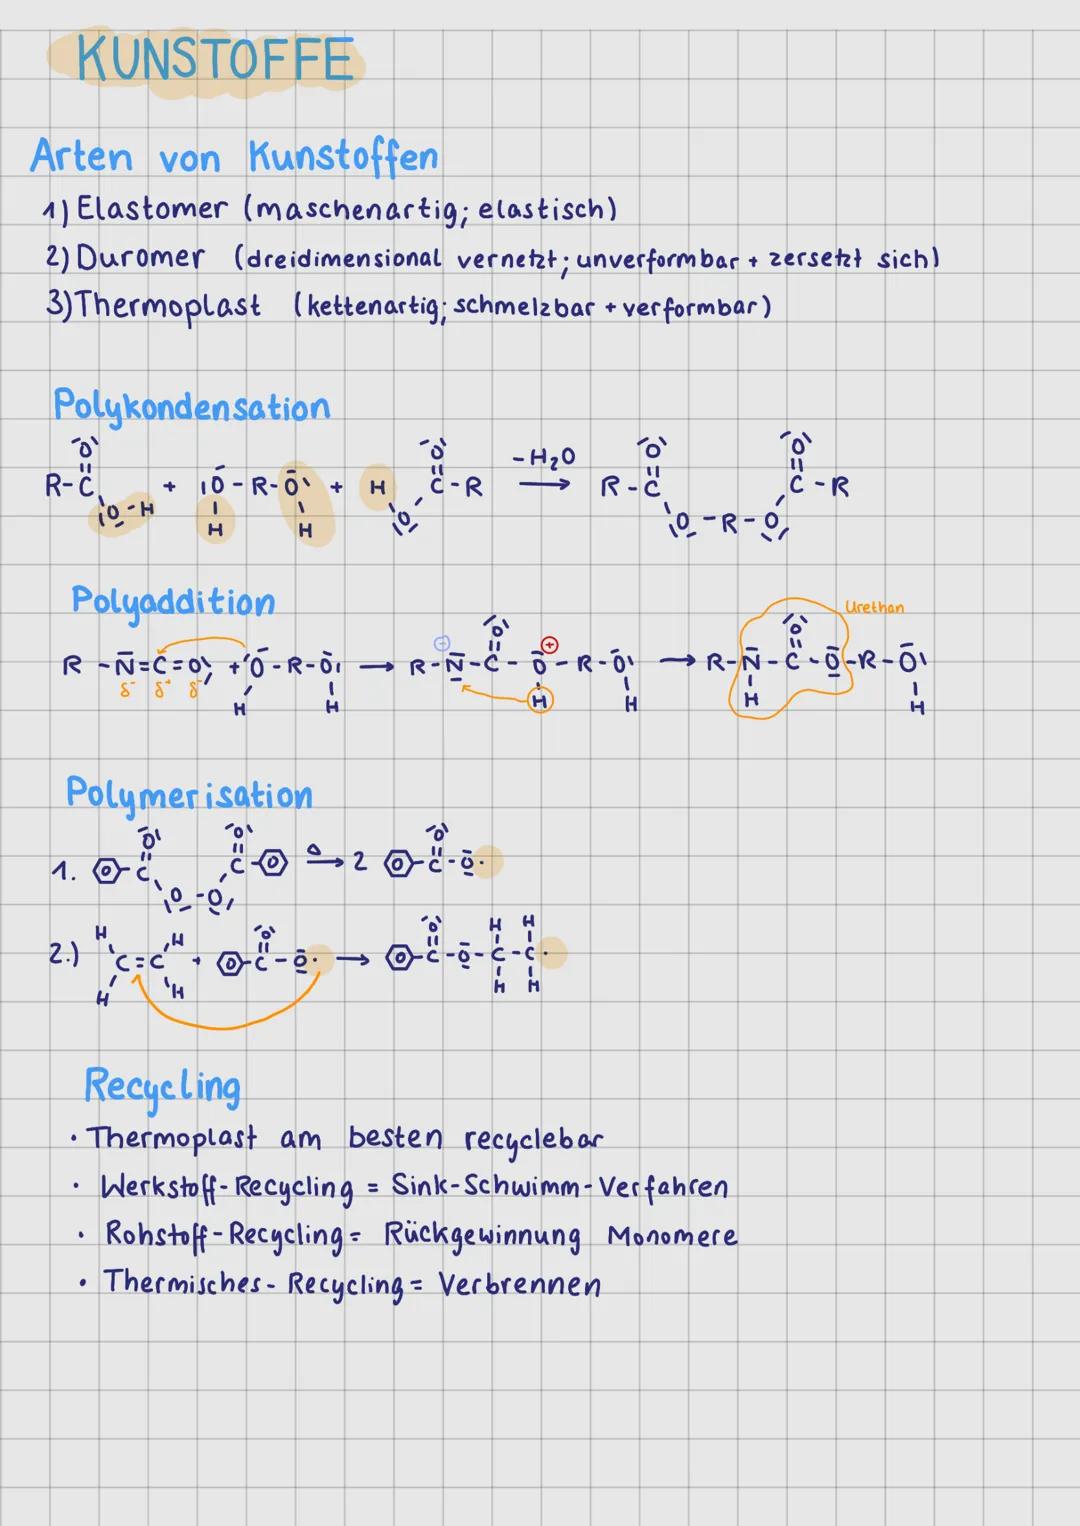 KUNSTOFFE
Arten von Kunstoffen
1) Elastomer (maschenartig; elastisch)
2) Duromer (dreidimensional vernetzt; unverformbar + zersetzt sich)
3) Thermoplast (kettenartig; schmelzbar + verformbar)
Polykondensation
R-C + O-R-O + H C-R -H₂O → R-C C-R
O-H H H O O-R-O
Polyaddition
Urethan
R-N=C=O + O-R-O → R-N-C-O-R-O → R-N-C-O-R-O
δ⁻ δ⁺ δ⁻ H H H H H H
Polymerisation
1. C C △ → 2 C-O·
O-O
2.) C=C + C-O· → C-O-C-C·
Recycling
· Thermoplast am besten recyclebar
· Werkstoff-Recycling = Sink-Schwimm-Verfahren
· Rohstoff-Recycling = Rückgewinnung Monomere
· Thermisches-Recycling = Verbrennen